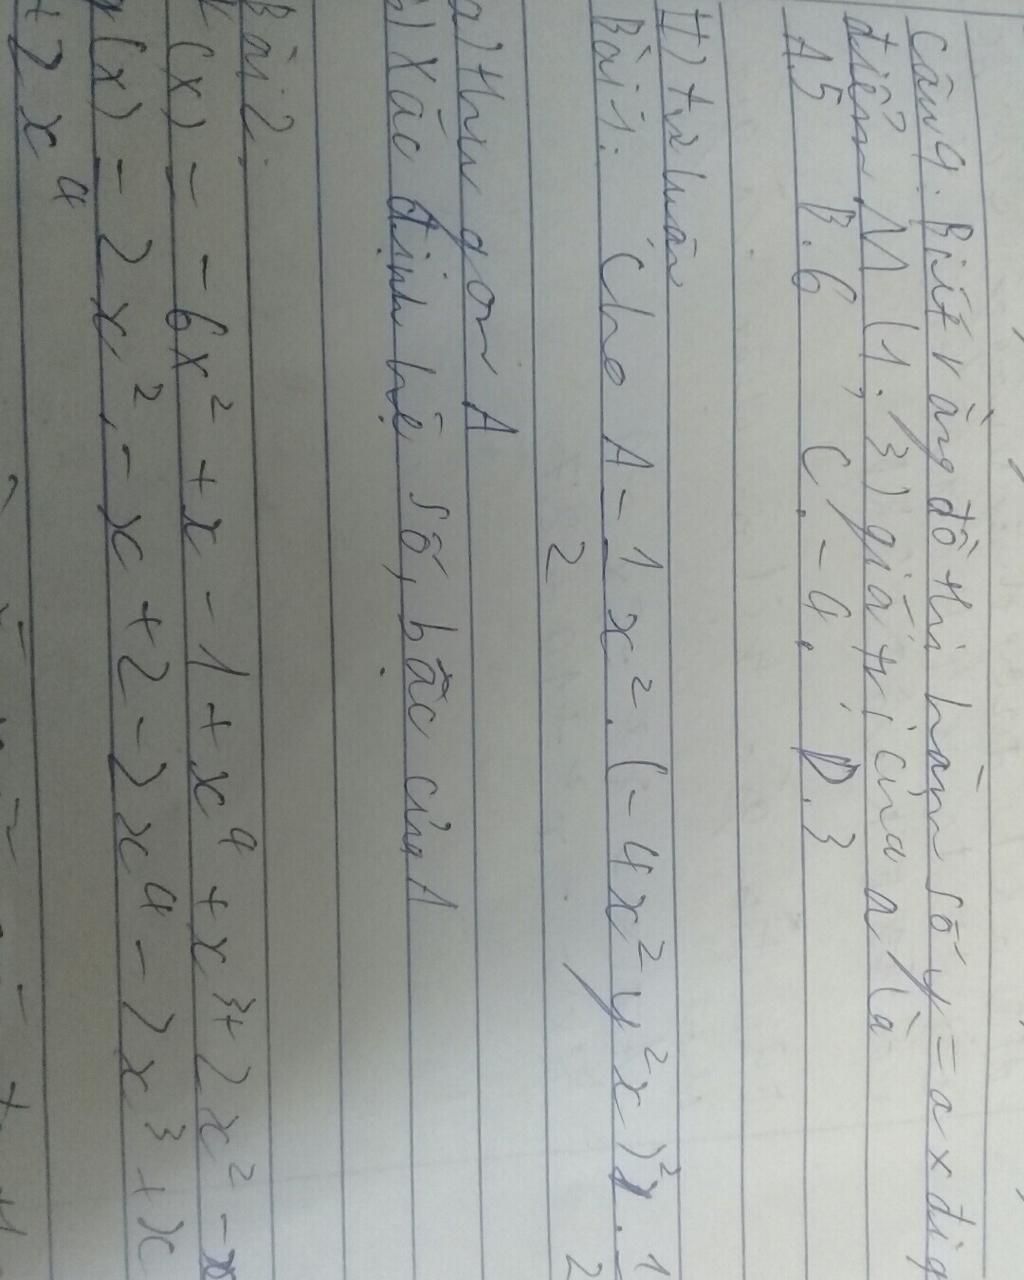 Câu 9. Biết rằng đồ thị hàm số y = ax đi q
điểm M (1; 3) giá trị của a là
A5 B.6 C.-4. D.3
II) tự luận
Bài 1: Cho A = 1 x². (-4x²y²x)². 1
2 2
a) thu gọn A
b) Xác định hệ số, bậc của A
Bài 2:
(x) = -6x² + x - 1 + x⁴ + x³ + 2x² - x
(x) = 2x² - x + 2 - 2x⁴ - 2x³ + x
+2x⁴